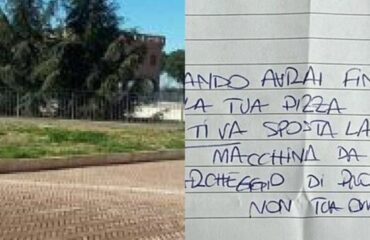 ANDO AVRAI FIN
LA TUA PIZZA
TI VA SPOSTA LA
MACCHINA DA
RCHEGGIO DI
NON TUO